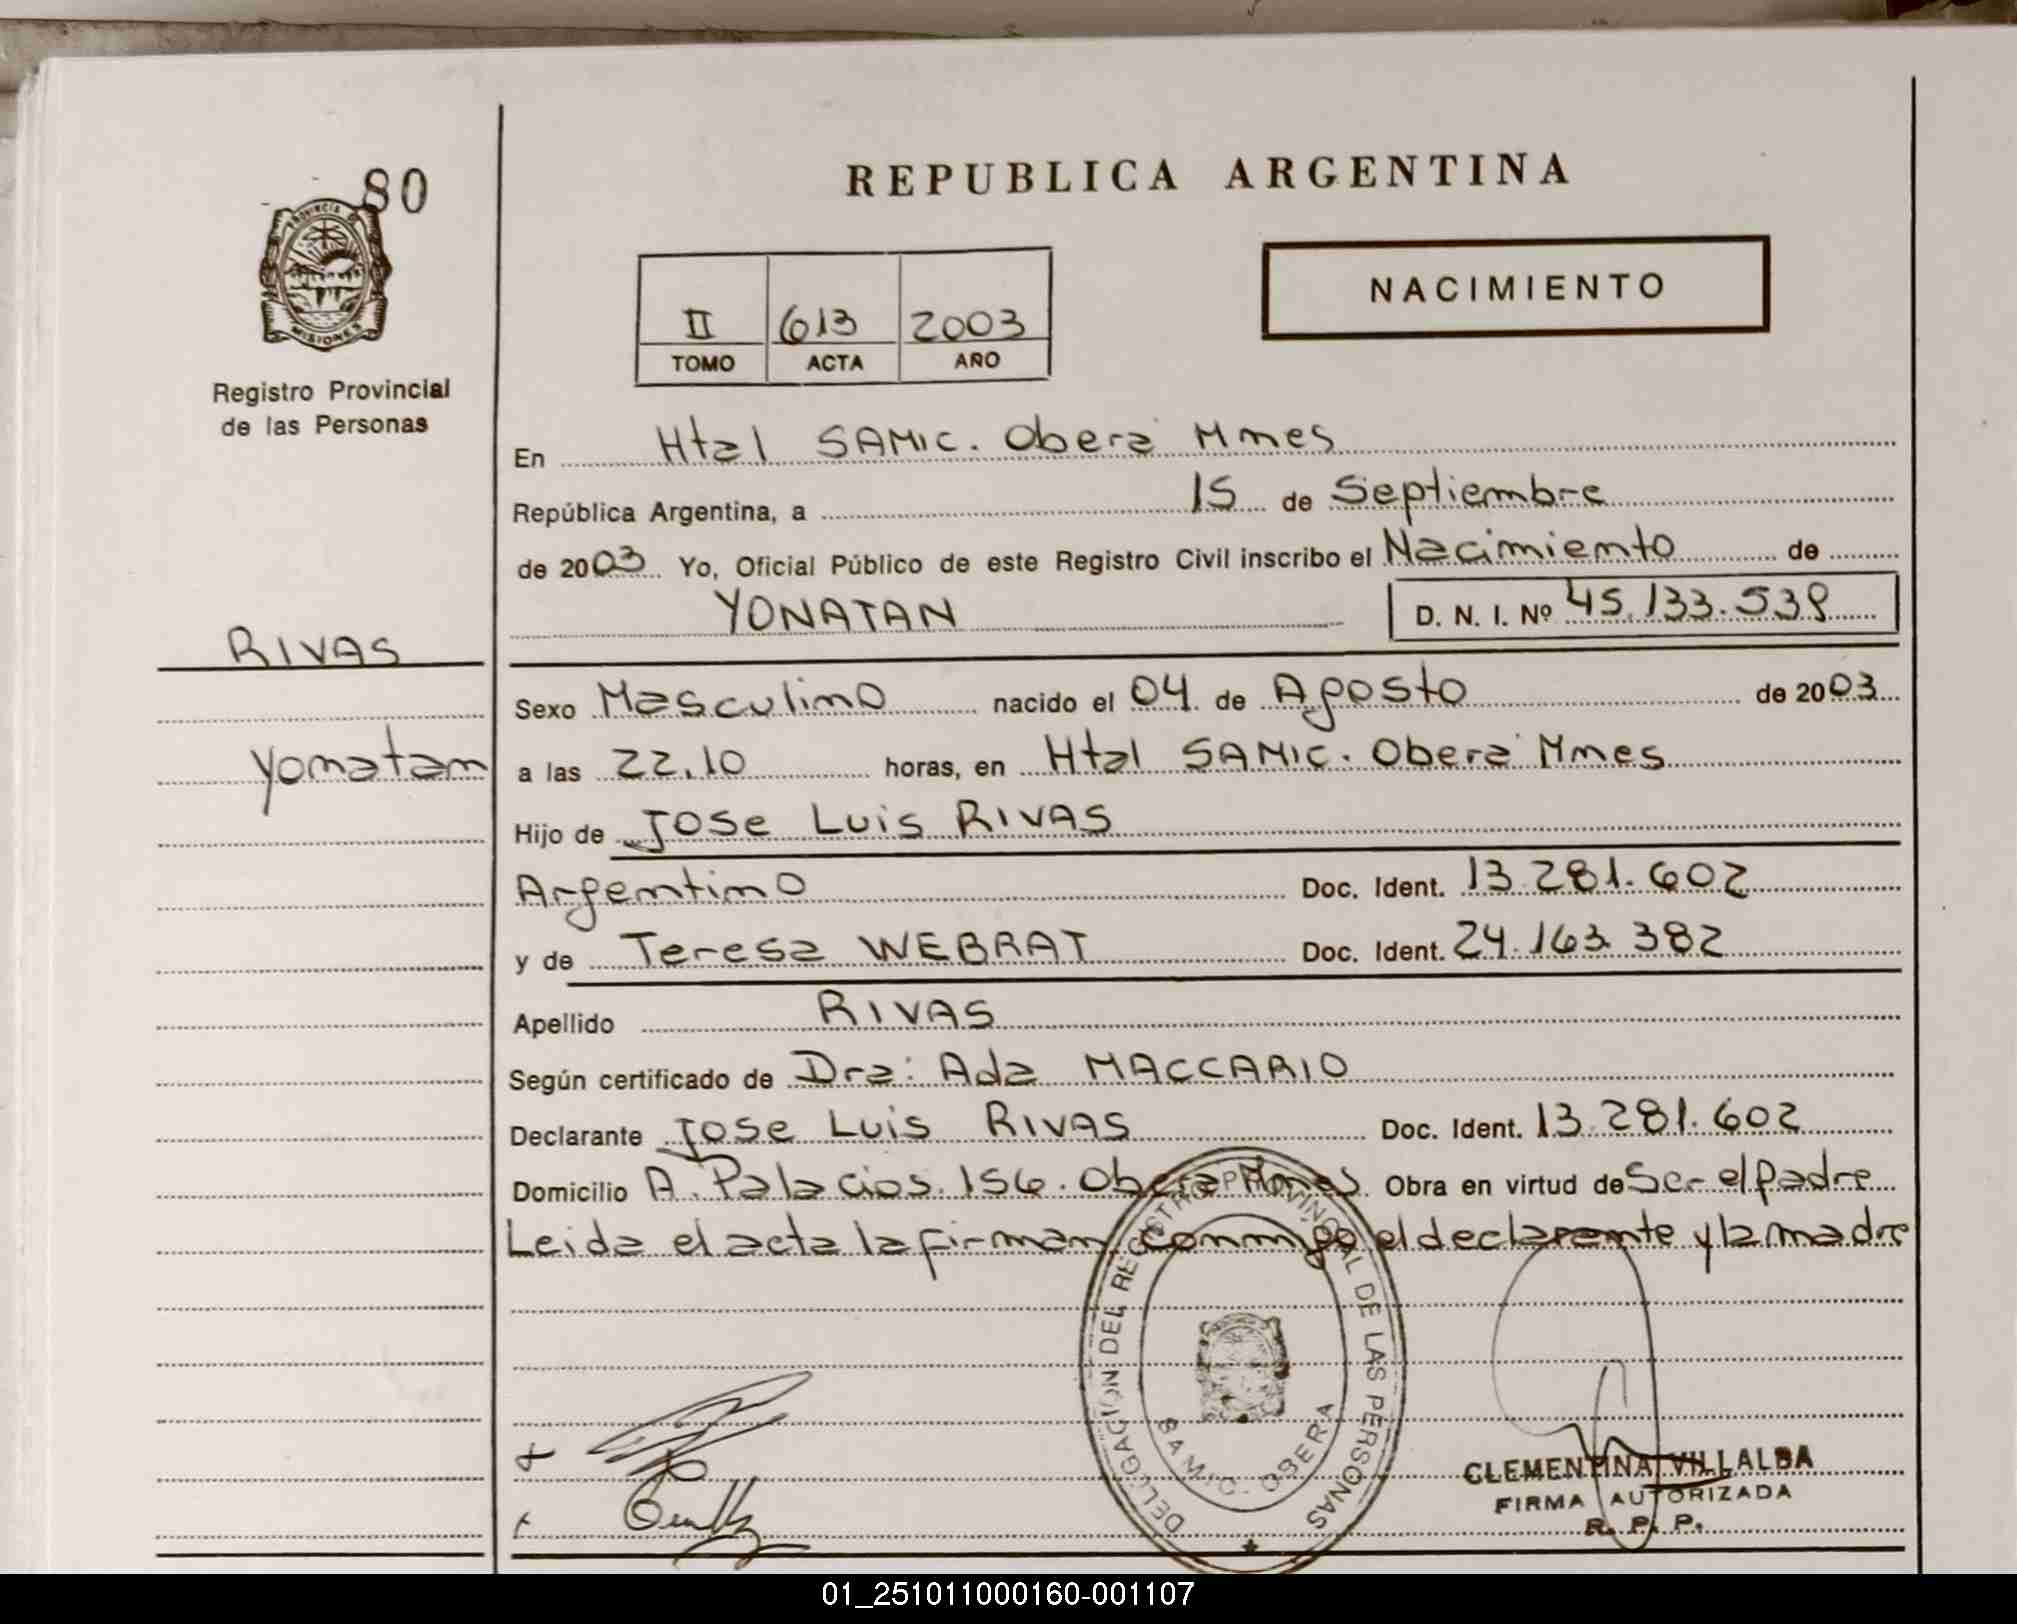 80
PROVINCIA DE
MISIONES
Registro Provincial
de las Personas
RIVAS
Yonatan
REPUBLICA ARGENTINA
II 613 2003
TOMO ACTA AÑO
NACIMIENTO
En Htal SAMIC. Oberá Mnes
República Argentina, a 15 de Septiembre
de 2003 Yo, Oficial Público de este Registro Civil inscribo el Nacimiento de
YONATAN D. N. I. Nº 45.133.539
Sexo Masculino nacido el 04 de Agosto de 2003
a las 22.10 horas, en Htal SAMIC. Oberá Mnes
Hijo de Jose Luis RIVAS
Argentino Doc. Ident. 13.281.602
y de Teresa WEBRAT Doc. Ident. 24.163.382
Apellido RIVAS
Según certificado de Dra: Ada MACCARIO
Declarante Jose Luis RIVAS Doc. Ident. 13.281.602
Domicilio A. Palacios 156. Oberá Mnes Obra en virtud de Ser el padre
Leida el acta la firman conmigo el declarante y la madre
DELEGACION DEL REGISTRO PROVINCIAL DE LAS PERSONAS
SAMIC - OBERA
CLEMENTINA VILLALBA
FIRMA AUTORIZADA
R. P. P.
01_251011000160-001107